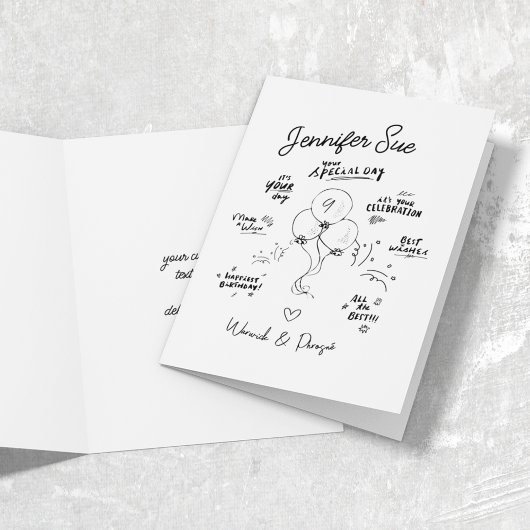 Jennifer Sue
your
SPECIAL DAY
it's
YOUR
day
it's YOUR
CELEBRATION
9
MAKE
a
WISH
BEST
WISHES
HAPPIEST
BIRTHDAY!
ALL
the
BEST!!!
Warwick &
your
text